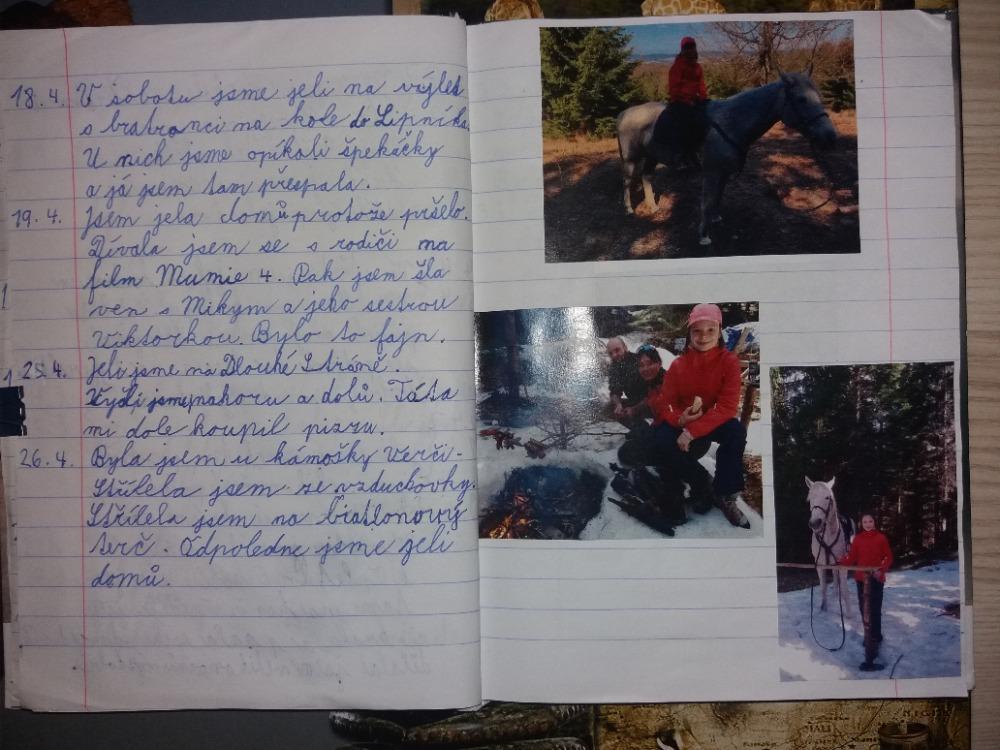 18.4. V sobotu jsme jeli na výlet
s bratranci na kole do Lipníka.
U nich jsme opíkali špekáčky
a já jsem tam přespala.
19.4. Jsem jela domů protože pršelo.
Dívala jsem se s rodiči na
film Mumie 4. Pak jsem šla
ven s Mikym a jeho sestrou
Viktorkou. Bylo to fajn.
25.4. Jeli jsme na Dlouhé Stráně.
Vyšli jsme nahoru a dolů. Táta
mi dole koupil pizzu.
26.4. Byla jsem u kámošky Verči.
Střílela jsem ze vzduchovky.
Střílela jsem na biatlonový
terč. Odpoledne jsme jeli
domů.